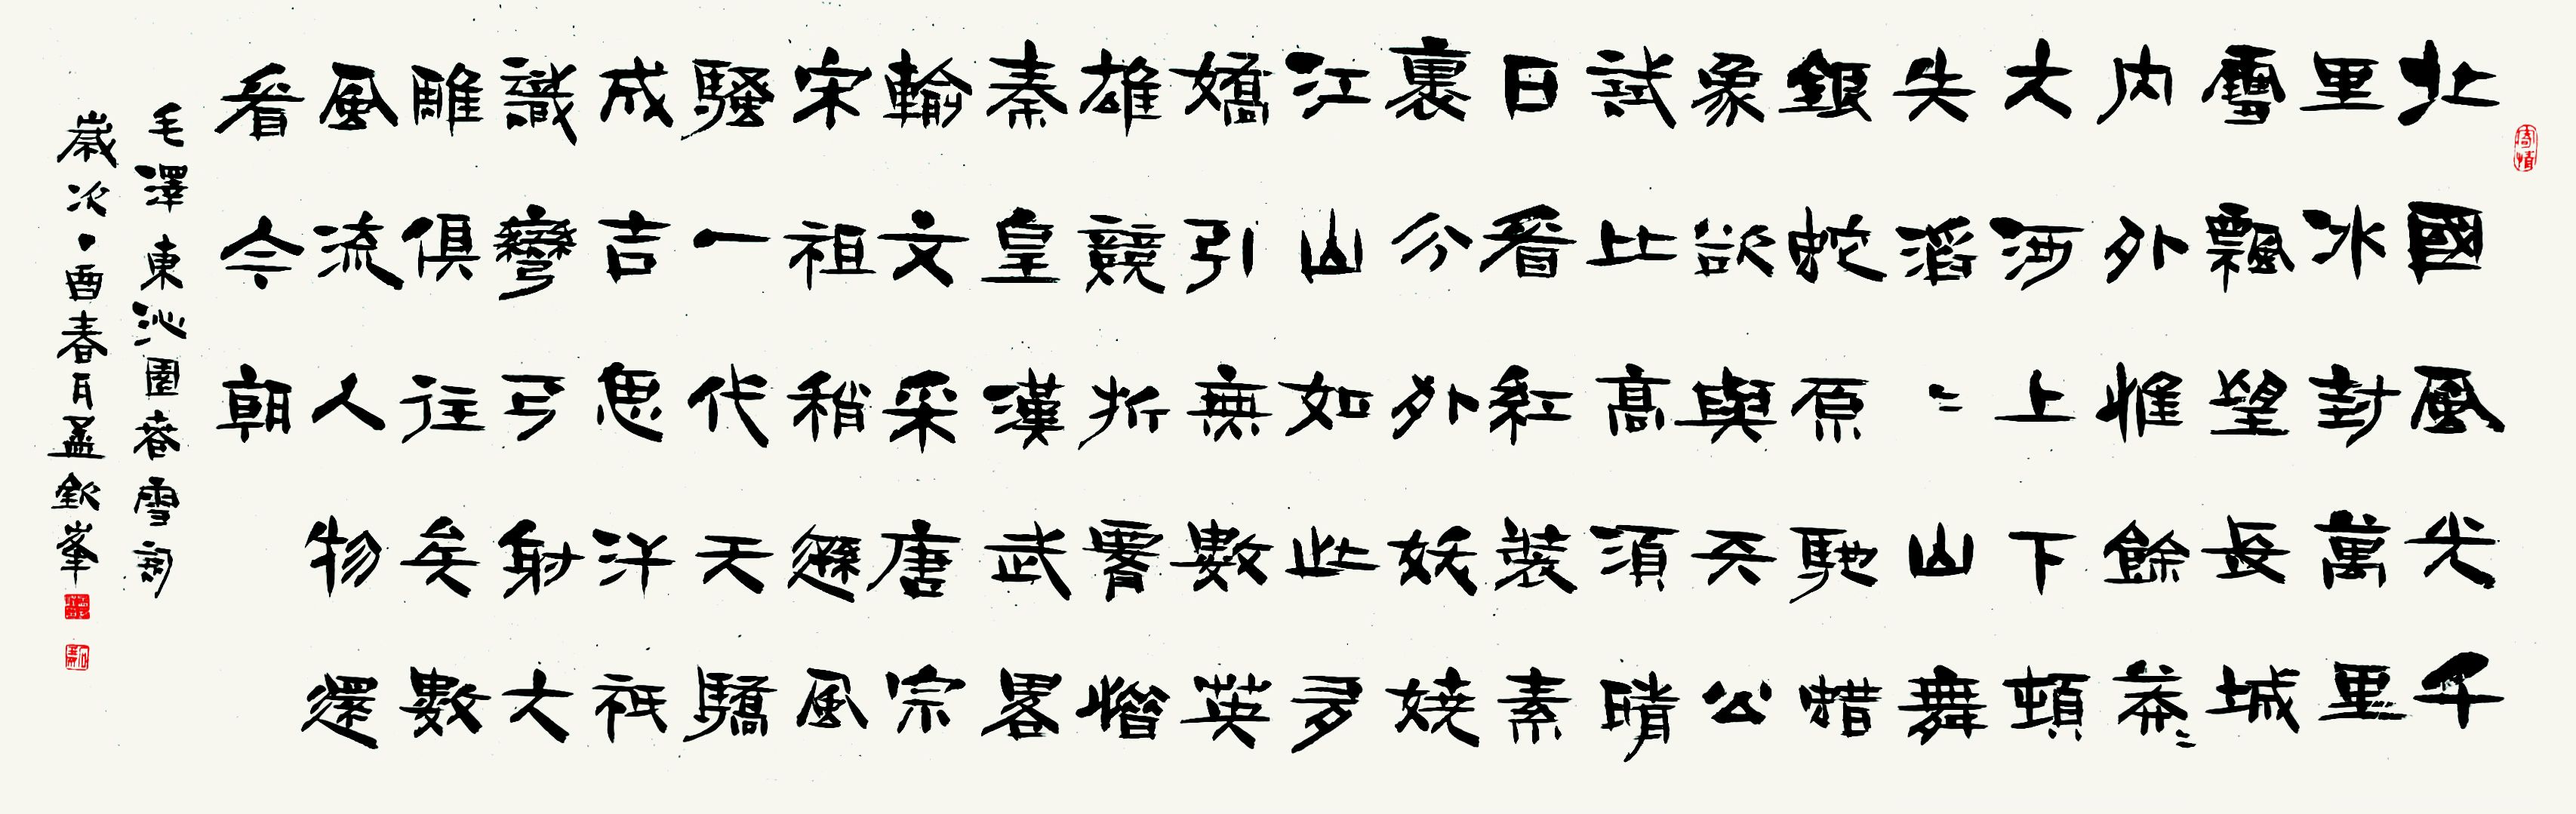 寄情
北國風光千
里冰封萬里
雪飄望長城
内外惟餘莽〻
大河上下頓
失滔〻山舞
銀蛇原馳蜡
象欲與天公
試比高須晴
日看紅裝素
裹分外妖嬈
江山如此多
嬌引無數英
雄競折腰惜
秦皇漢武畧
輸文采唐宗
宋祖稍遜風
騷一代天驕
成吉思汗祇
識彎弓射大
雕俱往矣數
風流人物還
看今朝
毛澤東沁園春雪詞
歲次丁酉春月孟欽峯